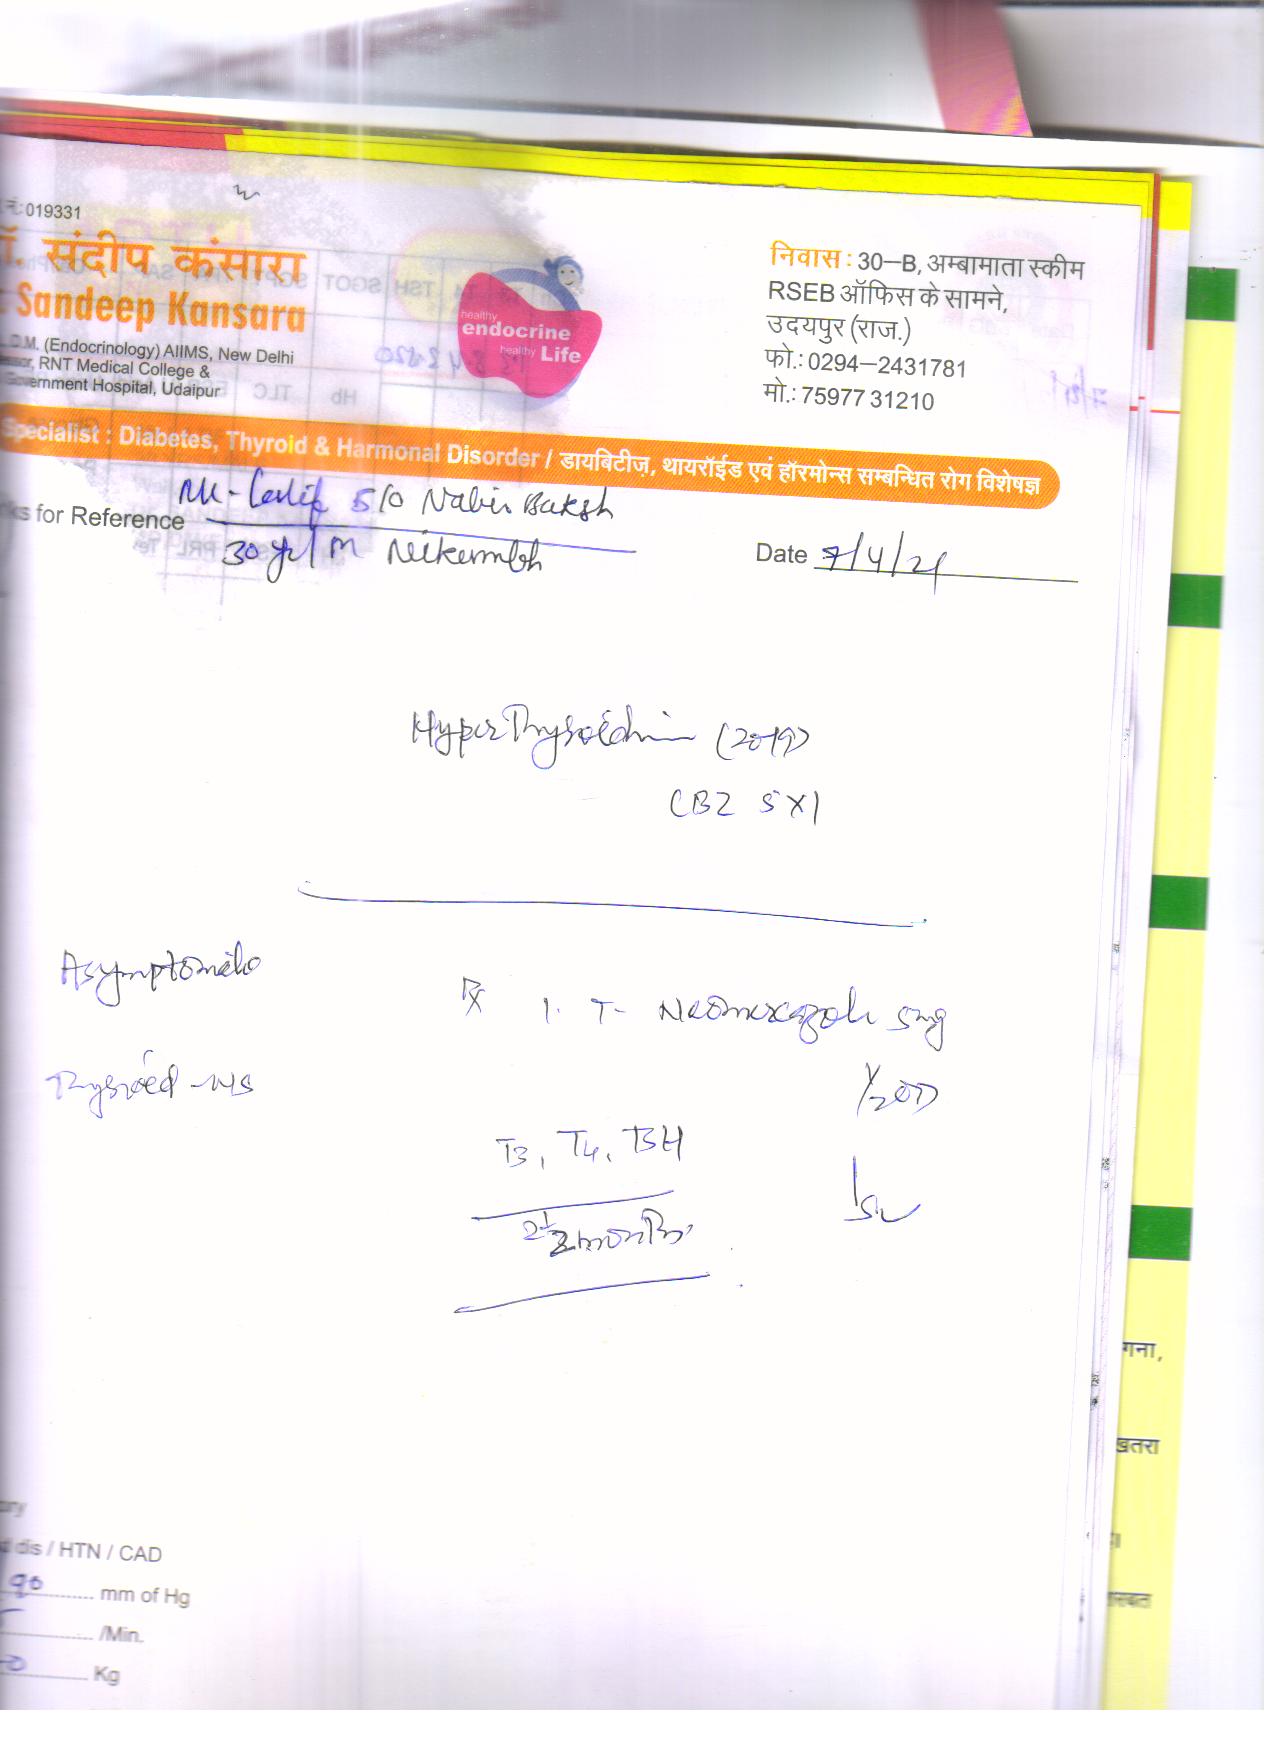 नं.: 019331
ॉ. संदीप कंसारा
Sandeep Kansara
D.M. (Endocrinology) AIIMS, New Delhi
RNT Medical College &
Government Hospital, Udaipur
healthy
endocrine
healthy Life
निवास : 30–B, अम्बामाता स्कीम
RSEB ऑफिस के सामने,
उदयपुर (राज.)
फो.: 0294–2431781
मो.: 75977 31210
Specialist : Diabetes, Thyroid & Harmonal Disorder / डायबिटीज़, थायरॉईड एवं हॉरमोन्स सम्बन्धित रोग विशेषज्ञ
ks for Reference
S/O Nabir Baksh
30 yr/M
Date 7/4/21
HyperThyroidin (2019)
CBZ 5 X 1
Asymptomatic
Thyroid - NS
Rx 1. T- Neomercazole 5mg
1/2 OD
T3, T4, TSH
2 1/2 months
ory
dis / HTN / CAD
90 mm of Hg
/Min.
Kg
गना,
खतरा